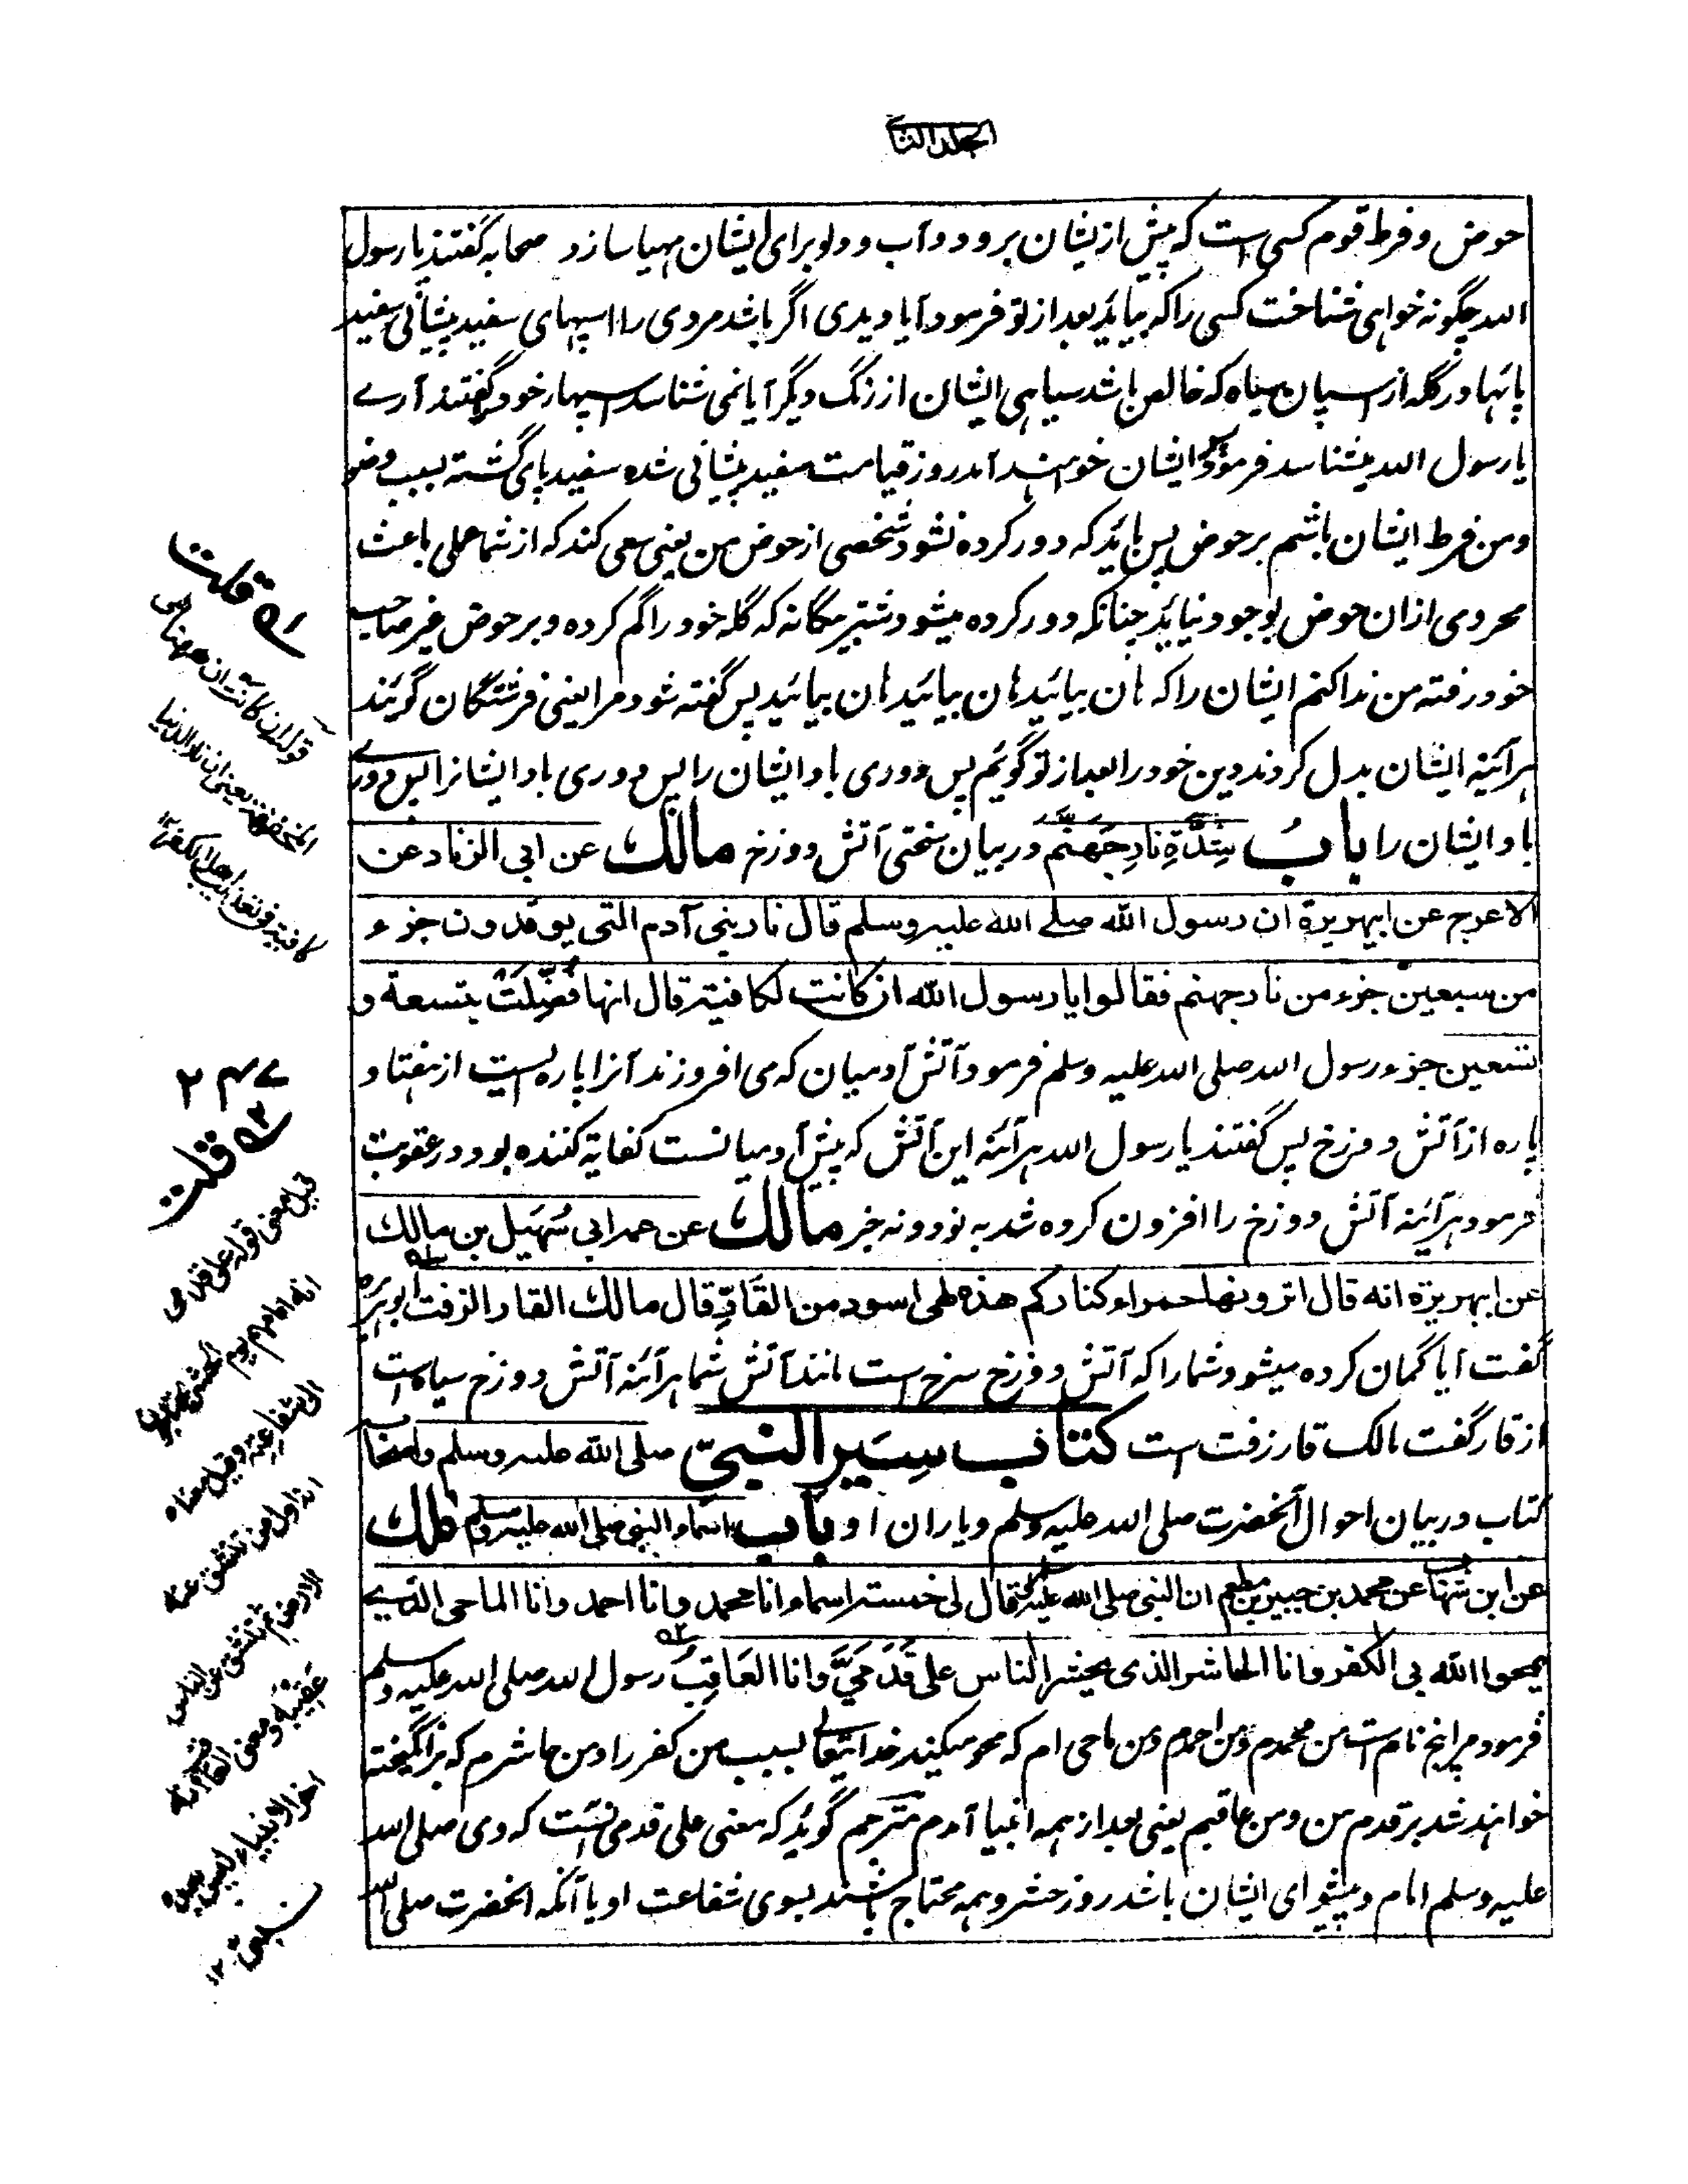 الجلد الثانی
حوض و فرط قوم کسی است که پیش از یشان برود و آب و دلو برای ایشان مهیا سازد صحابه گفتند یا رسول
الله چگونه خواهی شناخت کسی را که بیاید بعد از تو فرمود آیا دیدی اگر باشد مردی را اسپهای سفید پیشانی سفید
پائها در گله از اسپان سیاه که خالص باشد سیاهی ایشان از رنگ دیگر آیا نمی شناسد اسپهار خود گفتند آرے
یا رسول الله میشناسد فرمود ایشان خواهند آمد روز قیامت سفید پیشانی شده سفید پای گشته بسبب وضو
و من فرط ایشان باشم بر حوض پس باید که دور کرده نشود شخصی از حوض من یعنی سعی کند که از شما عملی باعث
محرومی ازان حوض بوجود نیاید چنانکه دور کرده میشود شتر بیگانه که گله خود را گم کرده و بر حوض غیر صاحب
خود رفته من ندا کنم ایشان را که هان بیائید هان بیائید هان بیائید پس گفته شود مرا یعنی فرشتگان گویند
هر آئینه ایشان بدل کردند دین خود را بعد از تو گویم پس دوری باد ایشان را پس دوری باد ایشانرا پس دوری
باد ایشان را بابُ شِدَّةِ نَارِ جَهَنَّمَ در بیان سختی آتش دوزخ مالك عن ابی الزناد عن
الاعرج عن ابیهریرة ان رسول الله صلے الله علیه وسلم قال نار بنی آدم التی یوقدون جزء
من سبعین جزء من نار جهنم فقالوا یا رسول الله ان کانت لکافیة قال انها فُضِّلَتْ بتسعة و
تسعین جزء رسول الله صلی الله علیه وسلم فرمود آتش آدمیان که می افروزند آنرا پاره ایست از هفتاد
پاره از آتش دوزخ پس گفتند یا رسول الله هر آئنه این آتش که پیش آدمیانست کفایة کننده بود در عقوبت
فرمود هر آئنه آتش دوزخ را افزون کرده شد به نود و نه جزء مالك عن عمه ابی سُهَیل بن مالك
عن ابیهریرة انه قال اترونها حمراء کنارکم هذه لهی اسود من القارِ قال مالك القار الزفت ابو هریره
گفت آیا گمان کرده میشود شما را که آتش دوزخ سرخ است مانند آتش شما هر آئنه آتش دوزخ سیاه است
از قار گفت مالک قار زفت است کتاب سِیَر النبیّ صلی الله علیه وسلم واصحابه
کتاب در بیان احوال آنحضرت صلی الله علیه وسلم و یاران او باب اسماء النبی صلی الله علیه وسلم مالك
عن ابن شهاب عن محمد بن جبیر بن مطعم ان النبی صلی الله علیه وسلم قال لی خمسة اسماء انا محمد وانا احمد وانا الماحی الذے
یمحوا الله بی الکفر وانا الحاشر الذی یحشر الناس علی قَدَمَیَّ وانا العَاقِبُ رسول الله صلی الله علیه وسلم
فرمود مرا پنج نام است من محمدم و من احمدم و من ماحی ام که محو میکند خدایتعالی بسبب من کفر را و من حاشرم که برانگیخته
خواهند شد بر قدم من و من عاقبم یعنی بعد از همه انبیا آمدم مترجم گوید که معنی علی قدمی آنست که وی صلی الله
علیه وسلم امام و پیشوای ایشان باشد روز حشر و همه محتاج باشند بسوی شفاعت او یا آنکه آنحضرت صلی الله
قلت
قوله ان کانت ان ههنا هی
المخففة یعنی ان نار الدنیا
کافیة فی تعذیب اهل الکفر ۱۲
قلت
قیل معنی قوله علی قدمی
انه امامهم یوم الحشر محتاجون
الی الشفاعة وقیل معناه
انه اول من تنشق عنه
الارض ثم تنشق عن الناس
عقیبه ومعنی العاقب انه
اخر الانبیاء لیس بعده
نبی ۱۲